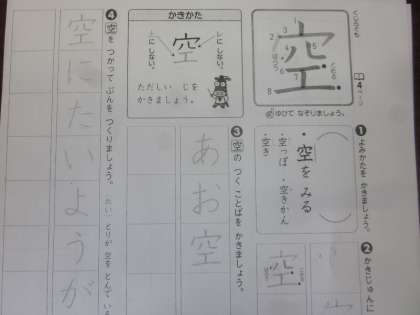 くもんでも
空
4ページ
ゆびで なぞりましょう。
かきかた
空
上に しない。
レに しない。
ただしい じを
かきましょう。
1 よみかたを かきましょう。
空を みる
・空っぽ ・空きかん
・空き
2 かきじゅんに
空
3 空の つく ことばを かきましょう。
あお空
4 空を つかって ぶんを つくりましょう。
とりが 空を とんで いる
空にたいようが